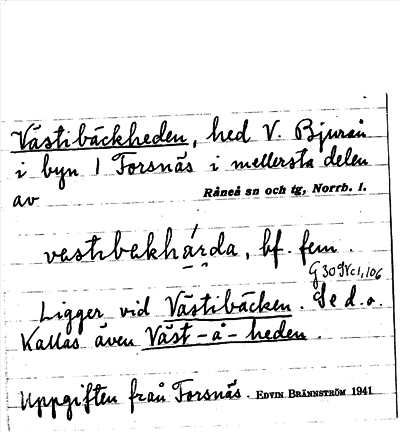 Västibäckheden, hed V. Bjurån
i byn 1 Forsnäs i mellersta delen
av Råneå sn och tg, Norrb. l.
vastɩbɛkhárda, bf. fem.
G 30 IV c1, 106
Ligger vid Västibäcken. Se d.o.
Kallas även Väst-å-heden.
Uppgiften från Forsnäs. EDVIN BRÄNNSTRÖM 1941